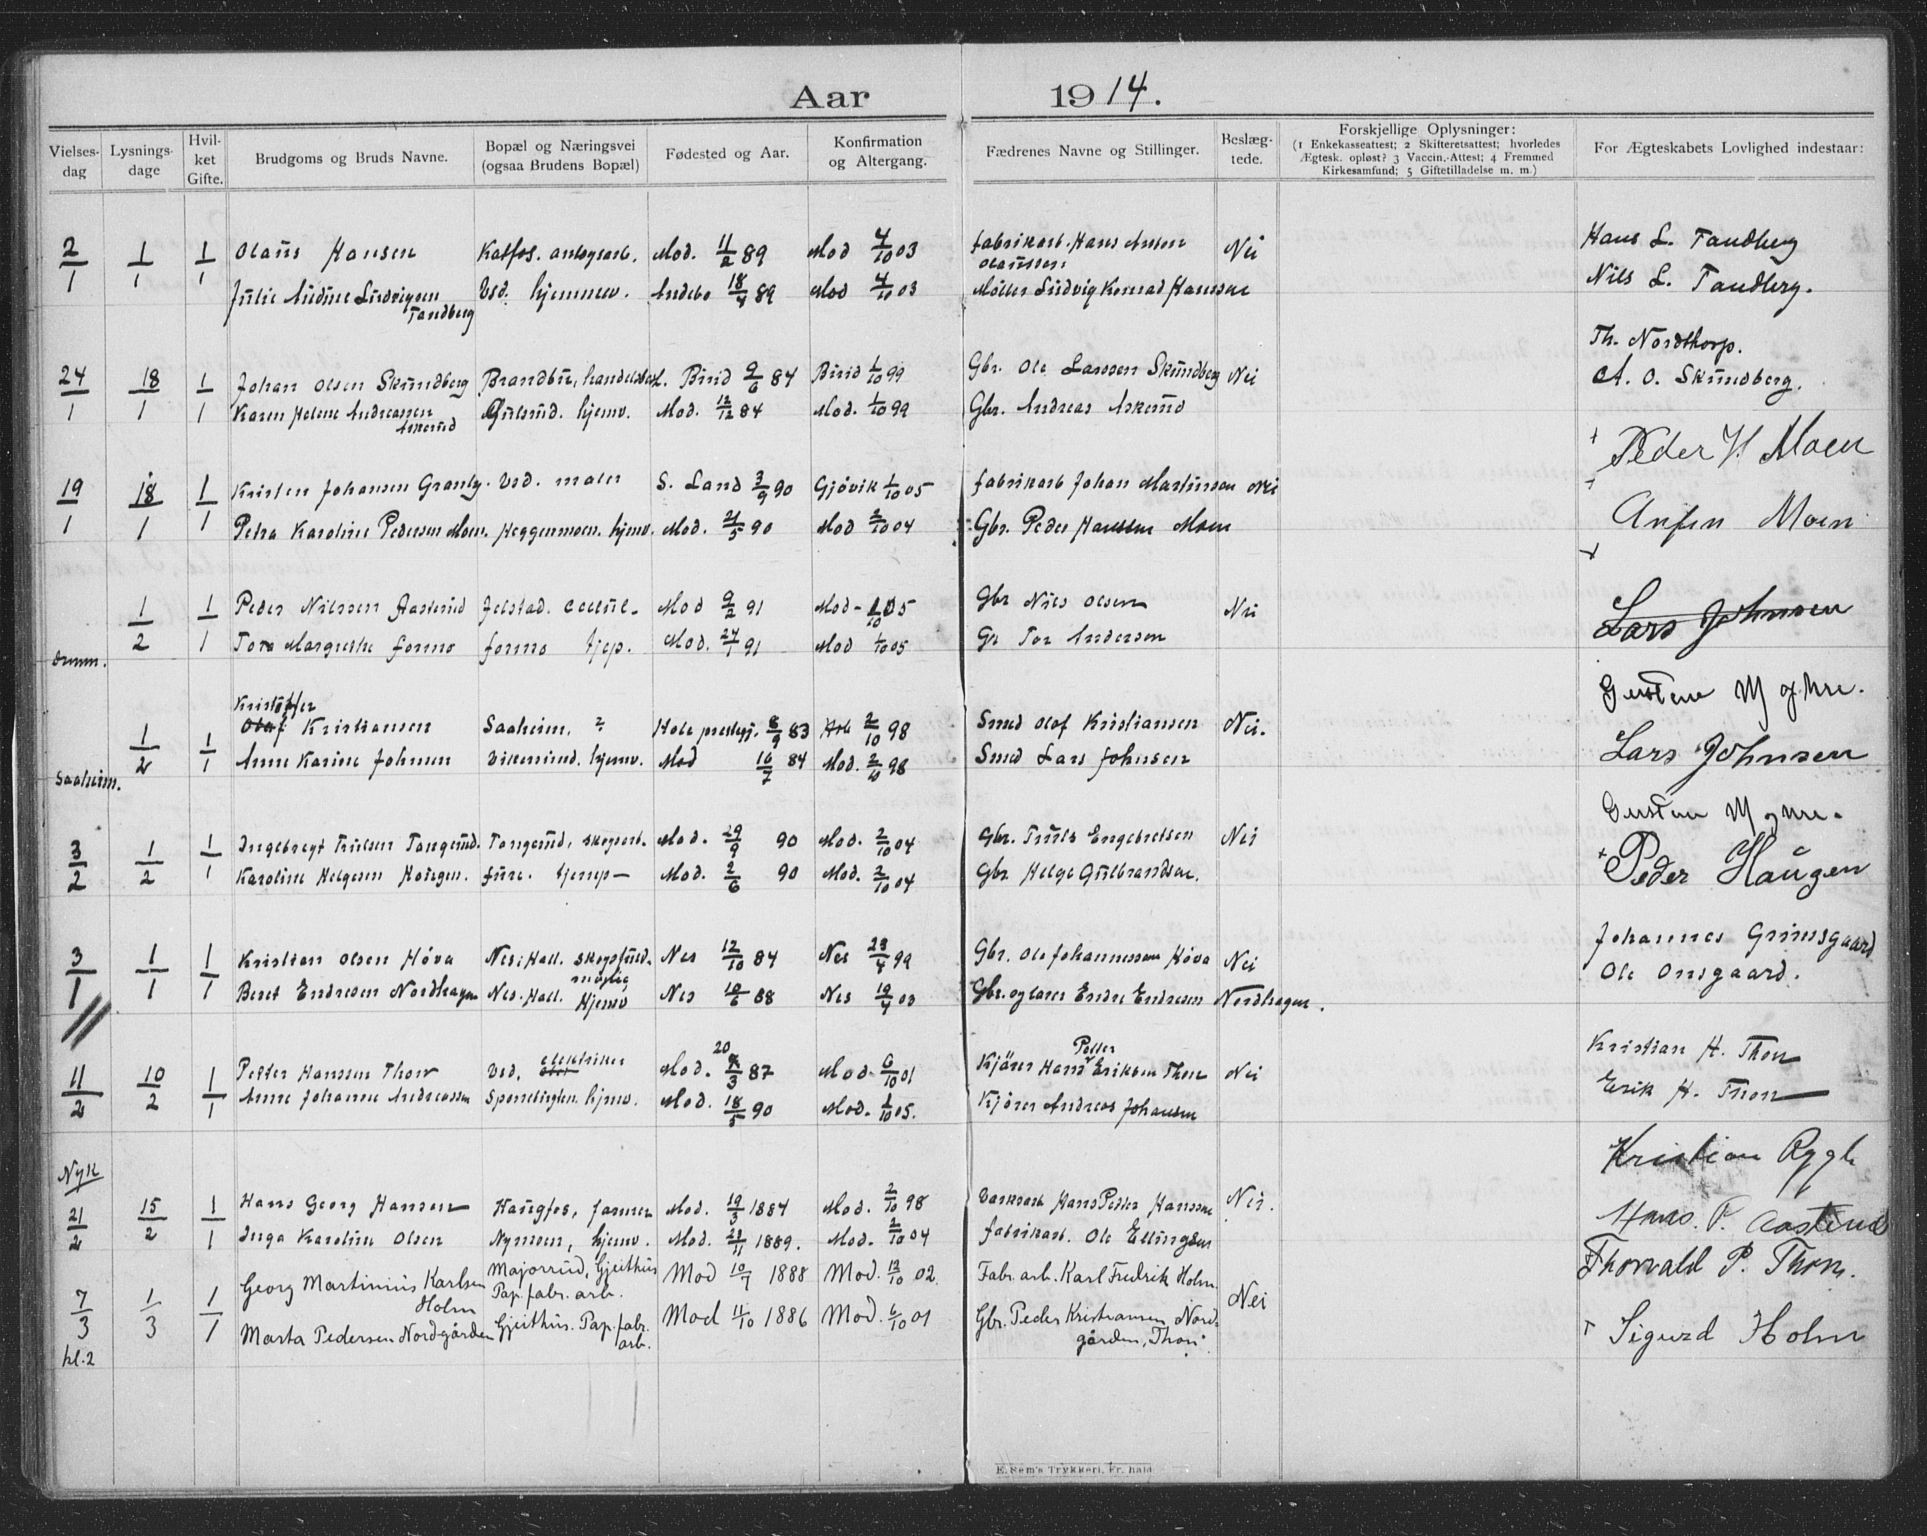 Aar 1914.
Vielses-dag
Lysnings-dage
Hvil-ket Gifte.
Brudgoms og Bruds Navne.
Bopæl og Næringsvei (ogsaa Brudens Bopæl)
Fødested og Aar.
Konfirmation og Altergang.
Fædrenes Navne og Stillinger.
Beslæg-tede.
Forskjellige Oplysninger: (1 Enkekasseattest; 2 Skifteretsattest; hvorledes Ægtesk. opløst? 3 Vaccin.-Attest; 4 Fremmed Kirkesamfund; 5 Giftetilladelse m. m.)
For Ægteskabets Lovlighed indestaar:
2/1 1/1 1 Olaus Hansen Katfos. Mod. 11/2 89 Mod 4/10 03 fabrikarb. Hans Anton Olaussen Nei Hans L. Tandberg
1 Julie Andine Ludvigsen Tandberg Ved. hjemmev. Andebo 18/4 89 Mod 4/10 03 Møller Ludvig Konrad Hanssen Nils L. Tandberg.
Th. Nordthorp.
24/1 18/1 1 Johan Olsen Skundberg Brandbu, Birid 9/6 84 Birid 1/10 99 Gbr. Ole Larssen Skundberg Nei A. O. Skundberg.
1 Karen Helene Andreassen Askerud Gulsrud. hjemv. Mod. 12/12 84 Mod. 1/10 99 Gbr. Andreas Askerud
+ Peder H. Moen
19/1 18/1 1 Kristen Johansen Granly. Ved. maler S. Land 3/9 90 Gjøvik 1/10 05 fabrikarb Johan Martinsen Nei
1 Petra Karoline Pedersen Moen. Heggenmoen. hjemv. Mod. 21/5 90 Mod 2/10 04 Gbr. Peder Hanssen Moen Anfin Moen
1/2 1 Peder Nilssen Aasterud Jelstad. Mod 9/2 91 Mod- 1/10 05 Gbr Nils Olsen Nei Lars Johnsen
1 Tora Margrethe formo formo tjep. Mod. 24/1 91 Mod 1/10 05 Gr Tor Andersen
Drmm.
Gustav Myhre.
1/2 1 Kristoffer Olaf Kristiansen Saaheim, ? Hole prestegj. 8/9 83 Hole 2/10 98 Smed Olof Kristiansen Nei. Lars Johnsen
1 Anne Karine Johnsen Vikersund. hjemv. Mod 16/7 84 Mod. 2/10 98 Smed Lars Johnsen
Saaheim.
Gustav Myhre.
3/2 1/2 1 Ingebregt Trulsen Tangerud. Tangerud, skogsarb. Mod. 29/9 90 Mod. 2/10 04 Gbr. Truls Engebretsen Nei + Peder Haugen
1 Karoline Helgesen Haugen. fure. tjenep- Mod. 2/6 90 Mod. 2/10 04 Gbr. Helge Gulbrandsen.
3/1 1/1 1 Kristian Olsen Høva Nes i Hall. skogsfuldmægtig Nes 12/10 84 Nes 23/4 99 Gbr. Ole Johannessen Høva Nei Johannes Grimsgaard
1 Beret Endresen Nordhagen Nes. Hall. Hjemv Nes 10/6 88 Nes 19/4 03 Gbr. og lærer Endre Endresen Nordhagen. Ole Onsgaard.
11/2 10/2 1 Petter Hanssen Thon Ved, elektriker Mod. 20/3 87 Mod. 6/10 01 Kjører Hans Petter Eriksen Thon Nei Kristian H. Thon
1 Anne Johanne Andreassen hjemv. Mod. 18/5 90 Mod. 1/10 05. Kjører Andreas Johansen Erik H. Thon
Nyk
Kristian Rygh
21/2 15/2 1 Hans Georg Hansen Haugfos, farmer Mod. 19/3 1884 Mod. 2/10 98 Hans Petter Hanssen Nei. Hans. P. Aasterud
1 Inga Karoline Olsen Nymoen, hjemv. Mod. 23/11 1889. Mod. 2/10 04 fabrikarb. Ole Ellingsen Thorvald P. Thon.
7/3 1/3 1 Georg Martinius Karlsen Holm Majorrud, Gjeithus Pap.fabr. arb. Mod 10/7 1888 Mod. 12/10 02. Fabr. arb. Karl Fredrik Holm Nei
kl. 2 1 Marta Pedersen Nordgården Gjeithus. Pap.fabr. arb. Mod 11/10 1886 Mod. 6/10 01 Gbr. Peder Kristiansen Nordgården, Thon. Sigurd Holm
E. Sem's Trykkeri, Fr. hald